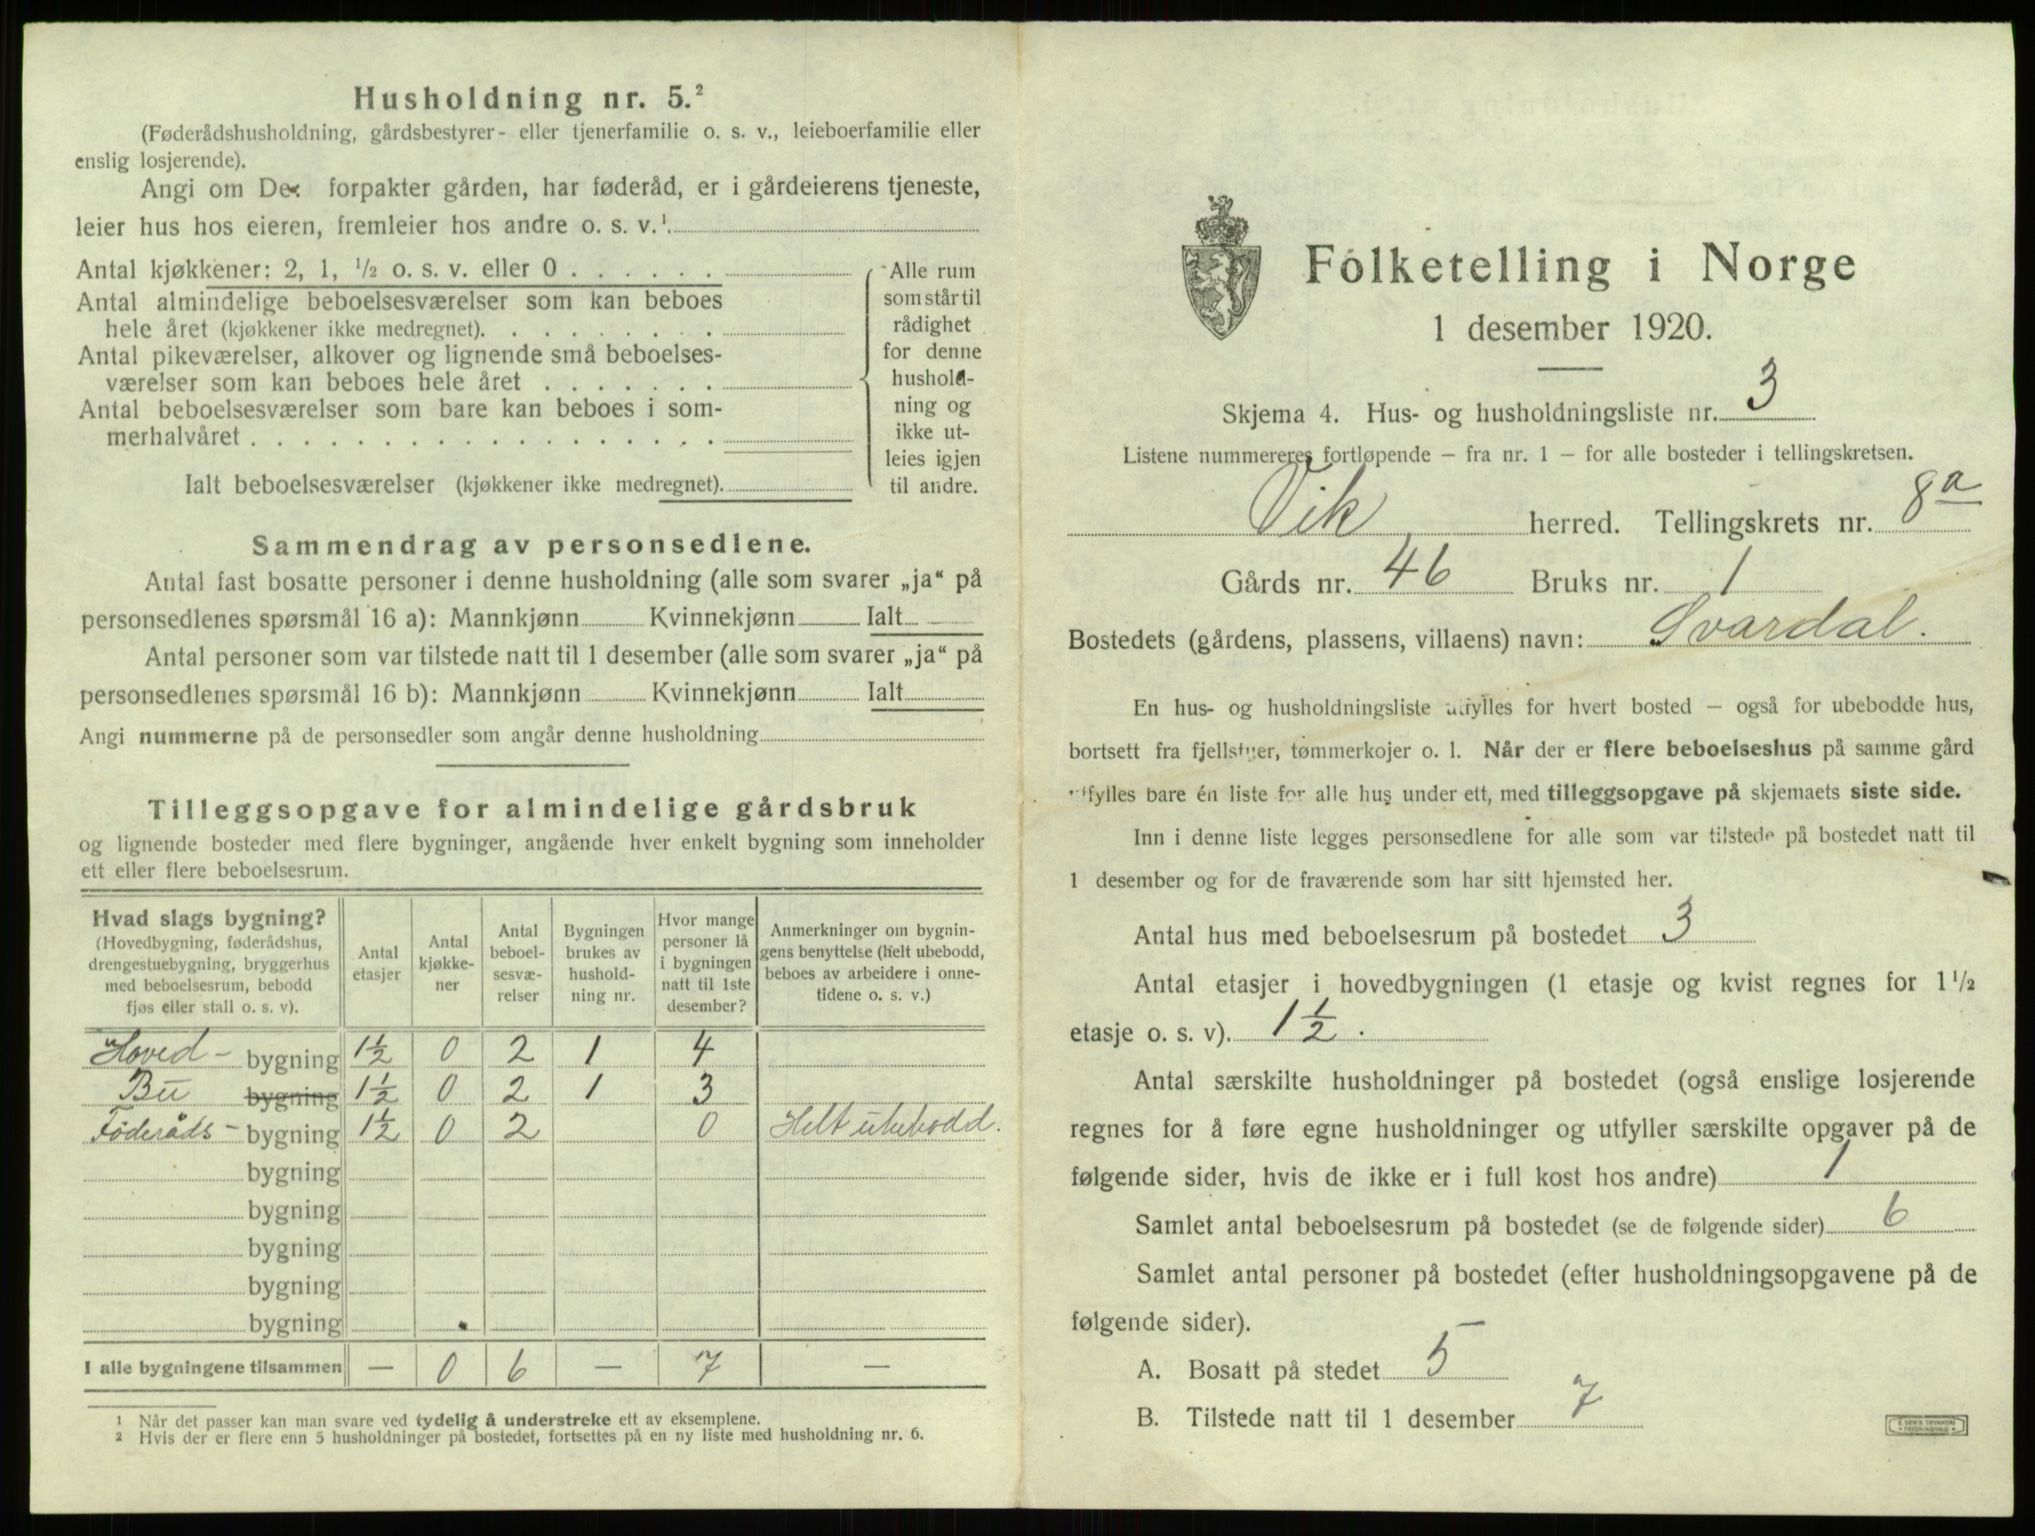 Husholdning nr. 5.²
(Føderådshusholdning, gårdsbestyrer- eller tjenerfamilie o. s. v., leieboerfamilie eller
enslig losjerende).
Angi om De: forpakter gården, har føderåd, er i gårdeierens tjeneste,
leier hus hos eieren, fremleier hos andre o. s. v.¹
Antal kjøkkener: 2, 1, ½ o. s. v. eller 0
Antal almindelige beboelsesværelser som kan beboes
hele året (kjøkkener ikke medregnet).
Antal pikeværelser, alkover og lignende små beboelses-
værelser som kan beboes hele året
Antal beboelsesværelser som bare kan beboes i som-
merhalvåret
Ialt beboelsesværelser (kjøkkener ikke medregnet).
Alle rum
som står til
rådighet
for denne
hushold-
ning og
ikke ut-
leies igjen
til andre.
Sammendrag av personsedlene.
Antal fast bosatte personer i denne husholdning (alle som svarer „ja“ på
personsedlenes spørsmål 16 a): Mannkjønn Kvinnekjønn Ialt
Antal personer som var tilstede natt til 1 desember (alle som svarer „ja“ på
personsedlenes spørsmål 16 b): Mannkjønn Kvinnekjønn Ialt
Angi nummerne på de personsedler som angår denne husholdning
Tilleggsopgave for almindelige gårdsbruk
og lignende bosteder med flere bygninger, angående hver enkelt bygning som inneholder
ett eller flere beboelsesrum.
Hvad slags bygning?
(Hovedbygning, føderådshus,
drengestuebygning, bryggerhus
med beboelsesrum, bebodd
fjøs eller stall o. s. v).
Antal
etasjer
Antal
kjøkke-
ner
Antal
beboel-
sesvæ-
relser
Bygningen
brukes av
hushold-
ning nr.
Hvor mange
personer lå
i bygningen
natt til 1ste
desember?
Anmerkninger om bygnin-
gens benyttelse (helt ubebodd,
beboes av arbeidere i onne-
tidene o. s. v.)
Hoved- bygning 1½ 0 2 1 4
Bu bygning 1½ 0 2 1 3
Føderåds- bygning 1½ 0 2 0 Helt ubebodd.
bygning
bygning
bygning
bygning
bygning
I alle bygningene tilsammen — 0 6 — 7 —
¹ Når det passer kan man svare ved tydelig å understreke ett av eksemplene.
² Hvis der er flere enn 5 husholdninger på bostedet, fortsettes på en ny liste med husholdning nr. 6.
Folketelling i Norge
1 desember 1920.
Skjema 4. Hus- og husholdningsliste nr. 3
Listene nummereres fortløpende – fra nr. 1 – for alle bosteder i tellingskretsen.
Vik herred. Tellingskrets nr. 8a
Gårds nr. 46 Bruks nr. 1
Bostedets (gårdens, plassens, villaens) navn: Svardal.
En hus- og husholdningsliste utfylles for hvert bosted – også for ubebodde hus,
bortsett fra fjellstuer, tømmerkojer o. l. Når der er flere beboelseshus på samme gård
utfylles bare én liste for alle hus under ett, med tilleggsopgave på skjemaets siste side.
Inn i denne liste legges personsedlene for alle som var tilstede på bostedet natt til
1 desember og for de fraværende som har sitt hjemsted her.
Antal hus med beboelsesrum på bostedet 3
Antal etasjer i hovedbygningen (1 etasje og kvist regnes for 1½
etasje o. s. v). 1½.
Antal særskilte husholdninger på bostedet (også enslige losjerende
regnes for å føre egne husholdninger og utfyller særskilte opgaver på de
følgende sider, hvis de ikke er i full kost hos andre) 1
Samlet antal beboelsesrum på bostedet (se de følgende sider) 6
Samlet antal personer på bostedet (efter husholdningsopgavene på de
følgende sider).
A. Bosatt på stedet 5
B. Tilstede natt til 1 desember 7